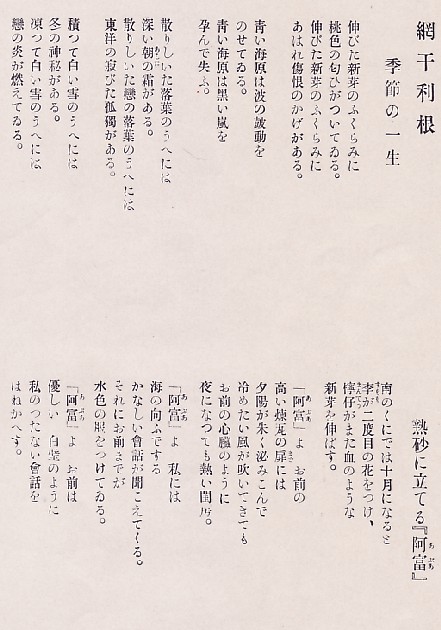 網干利根
季節の一生
伸びた新芽のふくらみに
桃色の匂ひがついてゐる。
伸びた新芽のふくらみに
あはれ傷恨のかげがある。
青い海原は波の鼓動を
のせてゐる。
青い海原は黒い嵐を
孕んで失ふ。
散りしいた落葉のうへには
深い朝の霜がある。
散りしいた戀の落葉のうへには
東洋の寂びた孤獨がある。
積つて白い雪のうへには
冬の神秘がある。
凍つて白い雪のうへには
戀の炎が燃えてゐる。
熱砂に立てる『阿富』
南のくにでは十月になると
李が二度目の花をつけ、
檸仔がまた血のような
新芽を伸ばす。
「阿富」よ お前の
高い煉瓦の扉には
夕陽が朱く泌みこんで
冷めたい風が吹いてきても
お前の心臓のように
夜になつても熱い閨房。
「阿富」よ 私には
海の向ふでする
かなしい會話が聞こえてくる。
それにお前までが
水色の服をつけてゐる。
「阿富」よ お前は
優しい 白壁のように
私のつたない會話を
はねかへす。